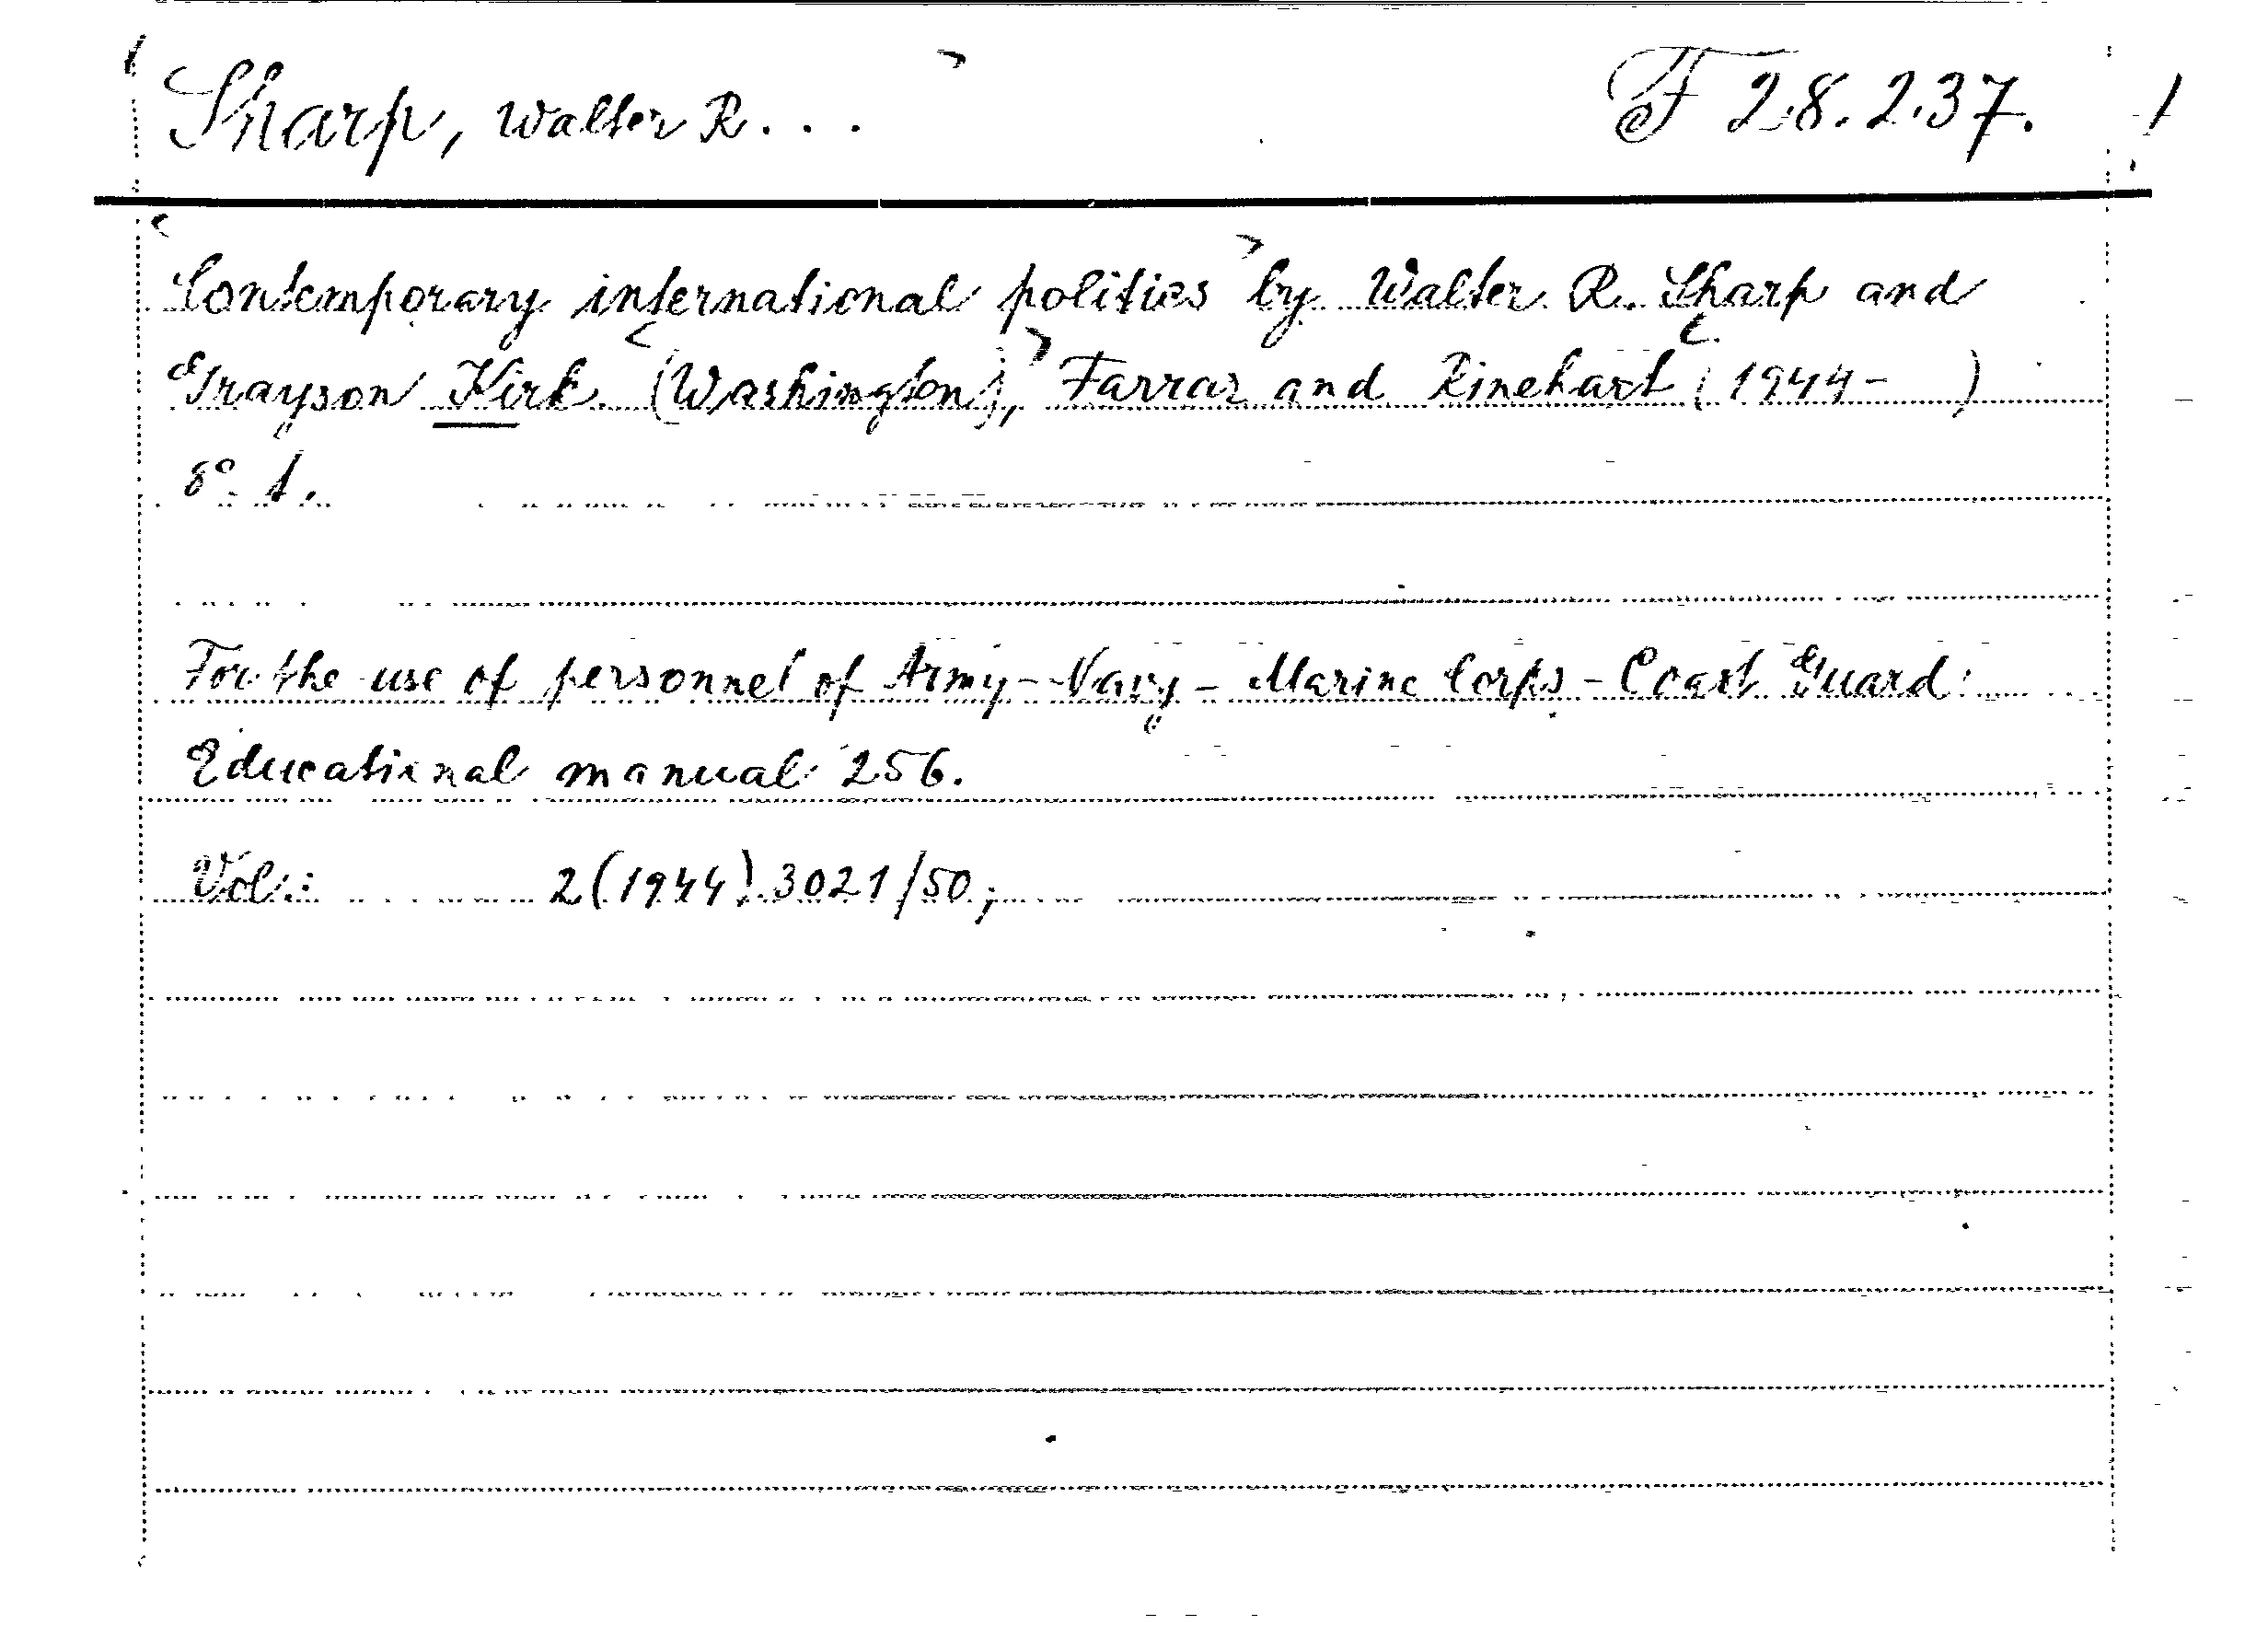 Sharp, Walter R... F 28.2.37.
Contemporary international politics by Walter R. Sharp and
Grayson Kirk. (Washington), Farrar and Rinehart (1944- )
8° 1.
For the use of personnel of Army-Navy-Marine Corps-Coast Guard.
Educational manual 256.
Vol.: 2(1944) 3021/50;